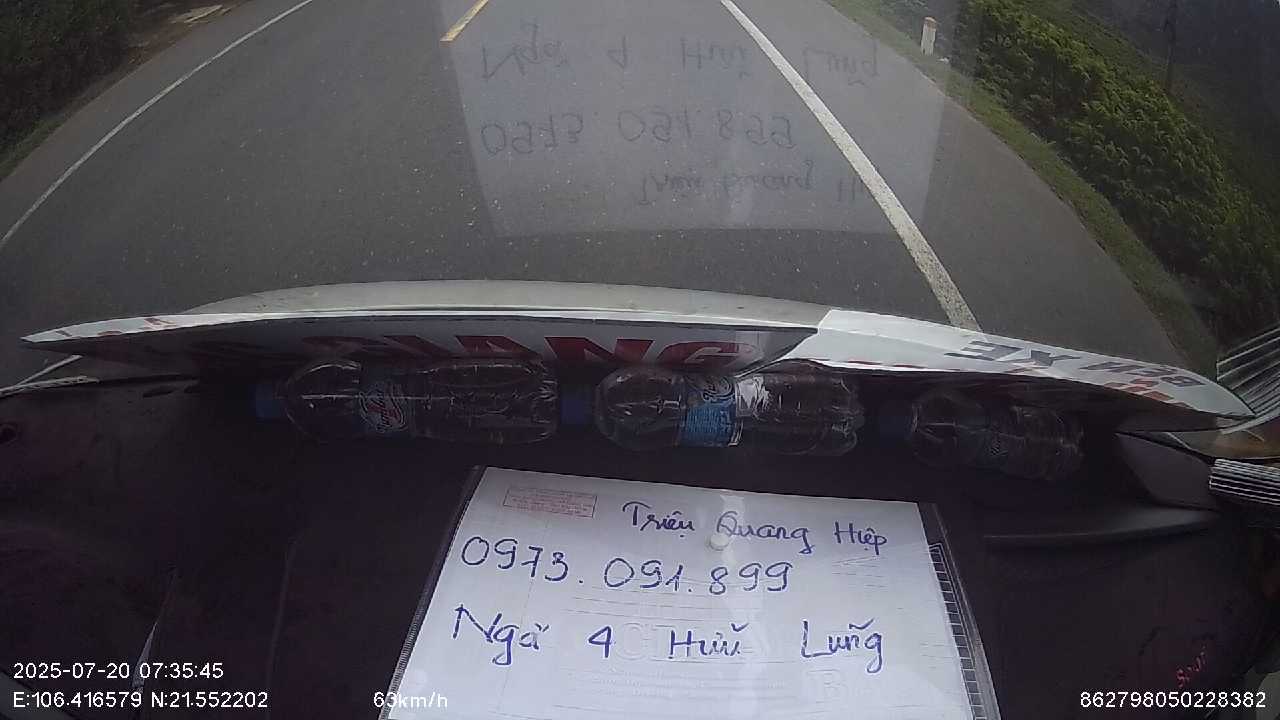 GIANG
BẾN XE
Triệu Quang Hiệp
0973.091.899
Ngã 4 Hữu Lũng
2025-07-20 07:35:45
E:106.416579 N:21.552202
63km/h
862798050228382